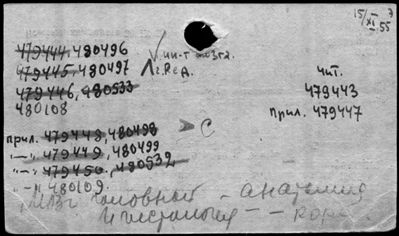 15/XI 55
479444, 480496
479445, 480497
479446, 480533
480108
Vин-т мозга.
1г.Ред.
чит.
479443
прил. 479447
прил. 479448, 480498
—„— 479449, 480499
—„— 479450, 480532
—„— 480109.
С
„Мозг головной - анатомия
и гистология - - кора